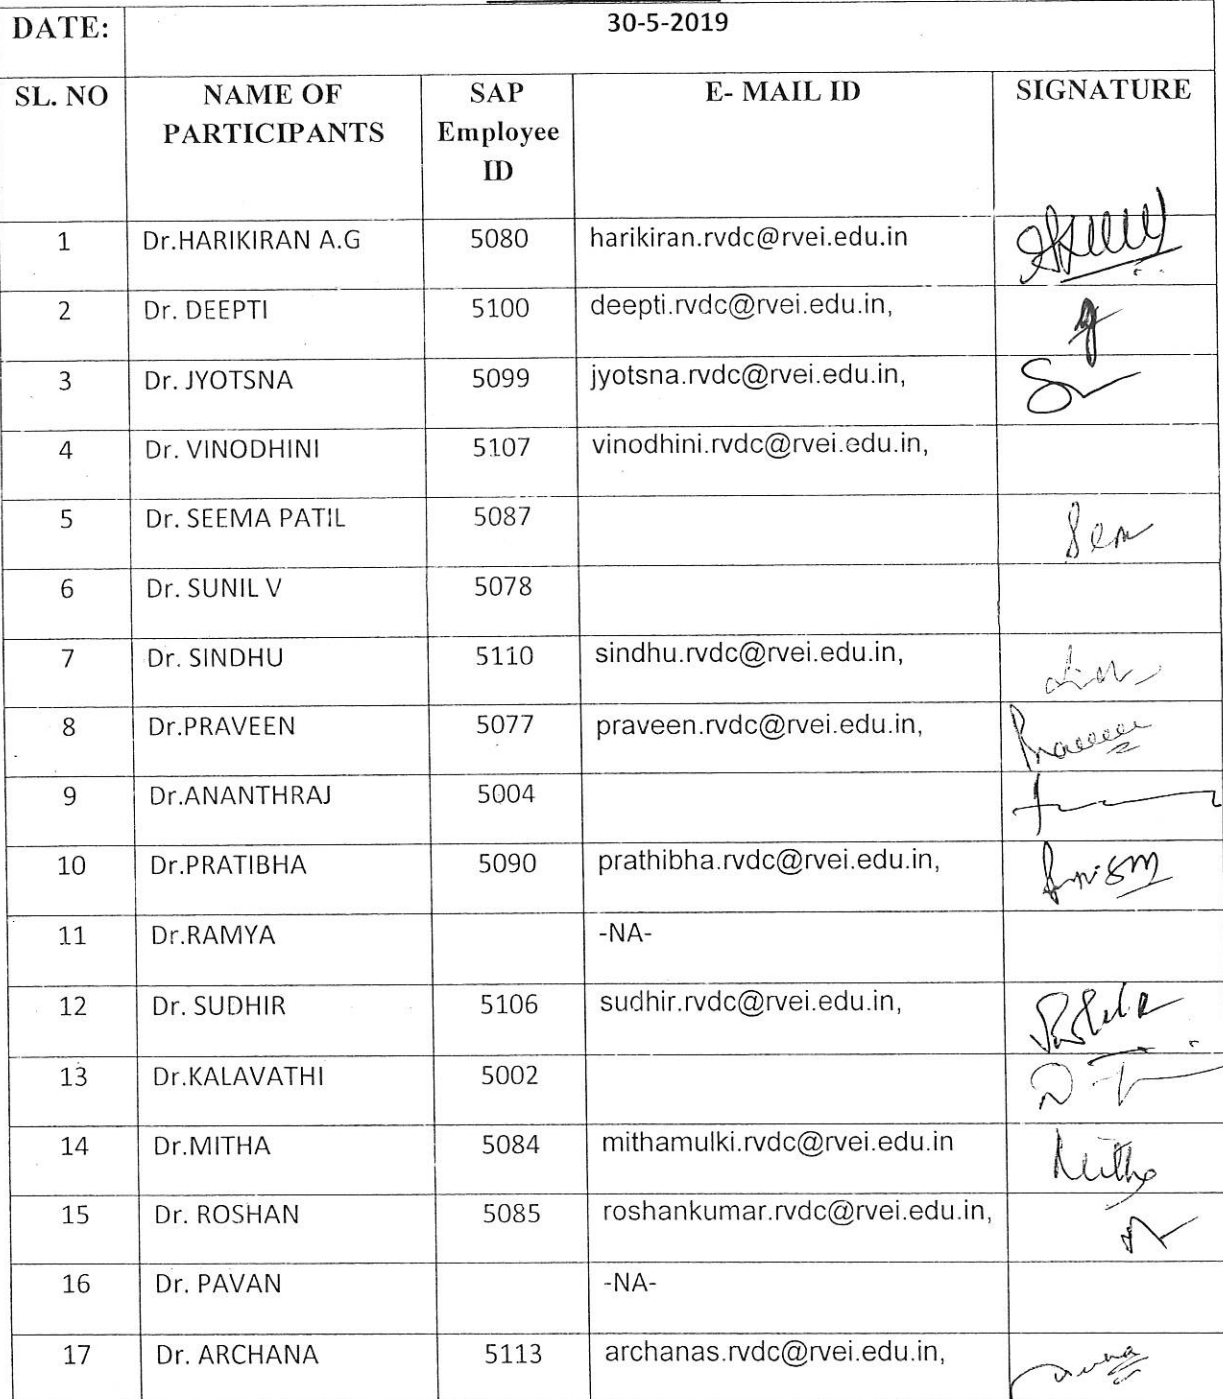 DATE: 30-5-2019
SL. NO NAME OF PARTICIPANTS SAP Employee ID E- MAIL ID SIGNATURE
1 Dr.HARIKIRAN A.G 5080 harikiran.rvdc@rvei.edu.in
2 Dr. DEEPTI 5100 deepti.rvdc@rvei.edu.in,
3 Dr. JYOTSNA 5099 jyotsna.rvdc@rvei.edu.in,
4 Dr. VINODHINI 5107 vinodhini.rvdc@rvei.edu.in,
5 Dr. SEEMA PATIL 5087
6 Dr. SUNIL V 5078
7 Dr. SINDHU 5110 sindhu.rvdc@rvei.edu.in,
8 Dr.PRAVEEN 5077 praveen.rvdc@rvei.edu.in,
9 Dr.ANANTHRAJ 5004
10 Dr.PRATIBHA 5090 prathibha.rvdc@rvei.edu.in,
11 Dr.RAMYA -NA-
12 Dr. SUDHIR 5106 sudhir.rvdc@rvei.edu.in,
13 Dr.KALAVATHI 5002
14 Dr.MITHA 5084 mithamulki.rvdc@rvei.edu.in Mitha
15 Dr. ROSHAN 5085 roshankumar.rvdc@rvei.edu.in,
16 Dr. PAVAN -NA-
17 Dr. ARCHANA 5113 archanas.rvdc@rvei.edu.in,